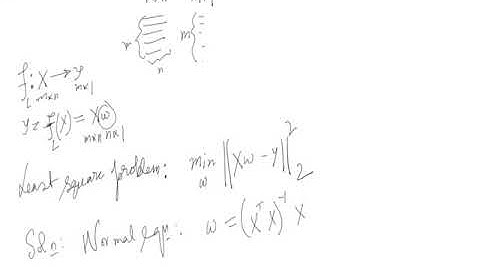 m n m
f: X → y
L m×n m×1
y = f_L(X) = Xw
m×n n×1
Least square problem: min_w ||Xw - y||²_2
Soln: Normal eqn: w = (XᵀX)⁻¹ X